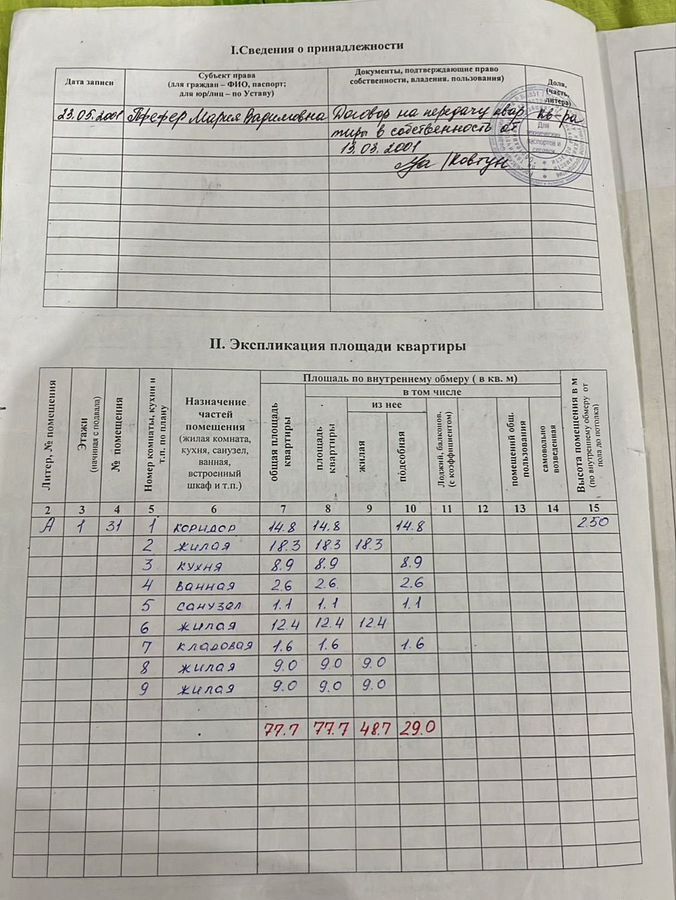 I.Сведения о принадлежности
Дата записи
Субъект права
(для граждан – ФИО, паспорт;
для юр/лиц – по Уставу)
Документы, подтверждающие право
собственности, владения. пользования)
Доля,
(часть,
литера)
23.05.2001 Пфефер Мария Вадимовна Договор на передачу квар кв-ра
тиры в собственность от
13.03.2001
/Ковтун
Для
II. Экспликация площади квартиры
Литер, № помещения
Этажи
(начиная с подвала)
№ помещения
Номер комнаты, кухни и
т.п. по плану
Назначение
частей
помещения
(жилая комната,
кухня, санузел,
ванная,
встроенный
шкаф и т.п.)
Площадь по внутреннему обмеру ( в кв. м)
общая площадь
квартиры
в том числе
площадь
квартиры
из нее
жилая
подсобная
Лоджий, балконов,
(с коэффициентом)
помещений общ.
пользования
самовольно
возведенная
Высота помещения в м
(по внутреннему обмеру от
пола до потолка)
2 3 4 5 6 7 8 9 10 11 12 13 14 15
А 1 31 1 коридор 14.8 14.8 14.8 2.50
2 жилая 18.3 18.3 18.3
3 кухня 8.9 8.9 8.9
4 ванная 2.6 2.6 2.6
5 санузел 1.1 1.1 1.1
6 жилая 12.4 12.4 12.4
7 кладовая 1.6 1.6 1.6
8 жилая 9.0 9.0 9.0
9 жилая 9.0 9.0 9.0
77.7 77.7 48.7 29.0